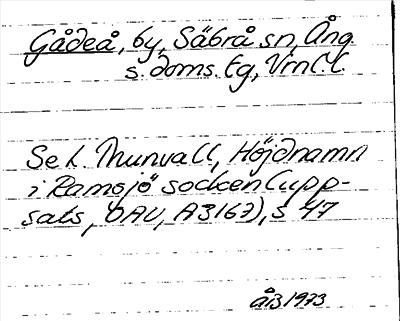 Gådeå, by, Säbrå sn, Ång.
s. doms. tg, Vrnl. l.
Se L. Thunvall, Höjdnamn
i Ramsjö socken (upp-
sats, ÖAU, A3167), s 47
ÅB 1973